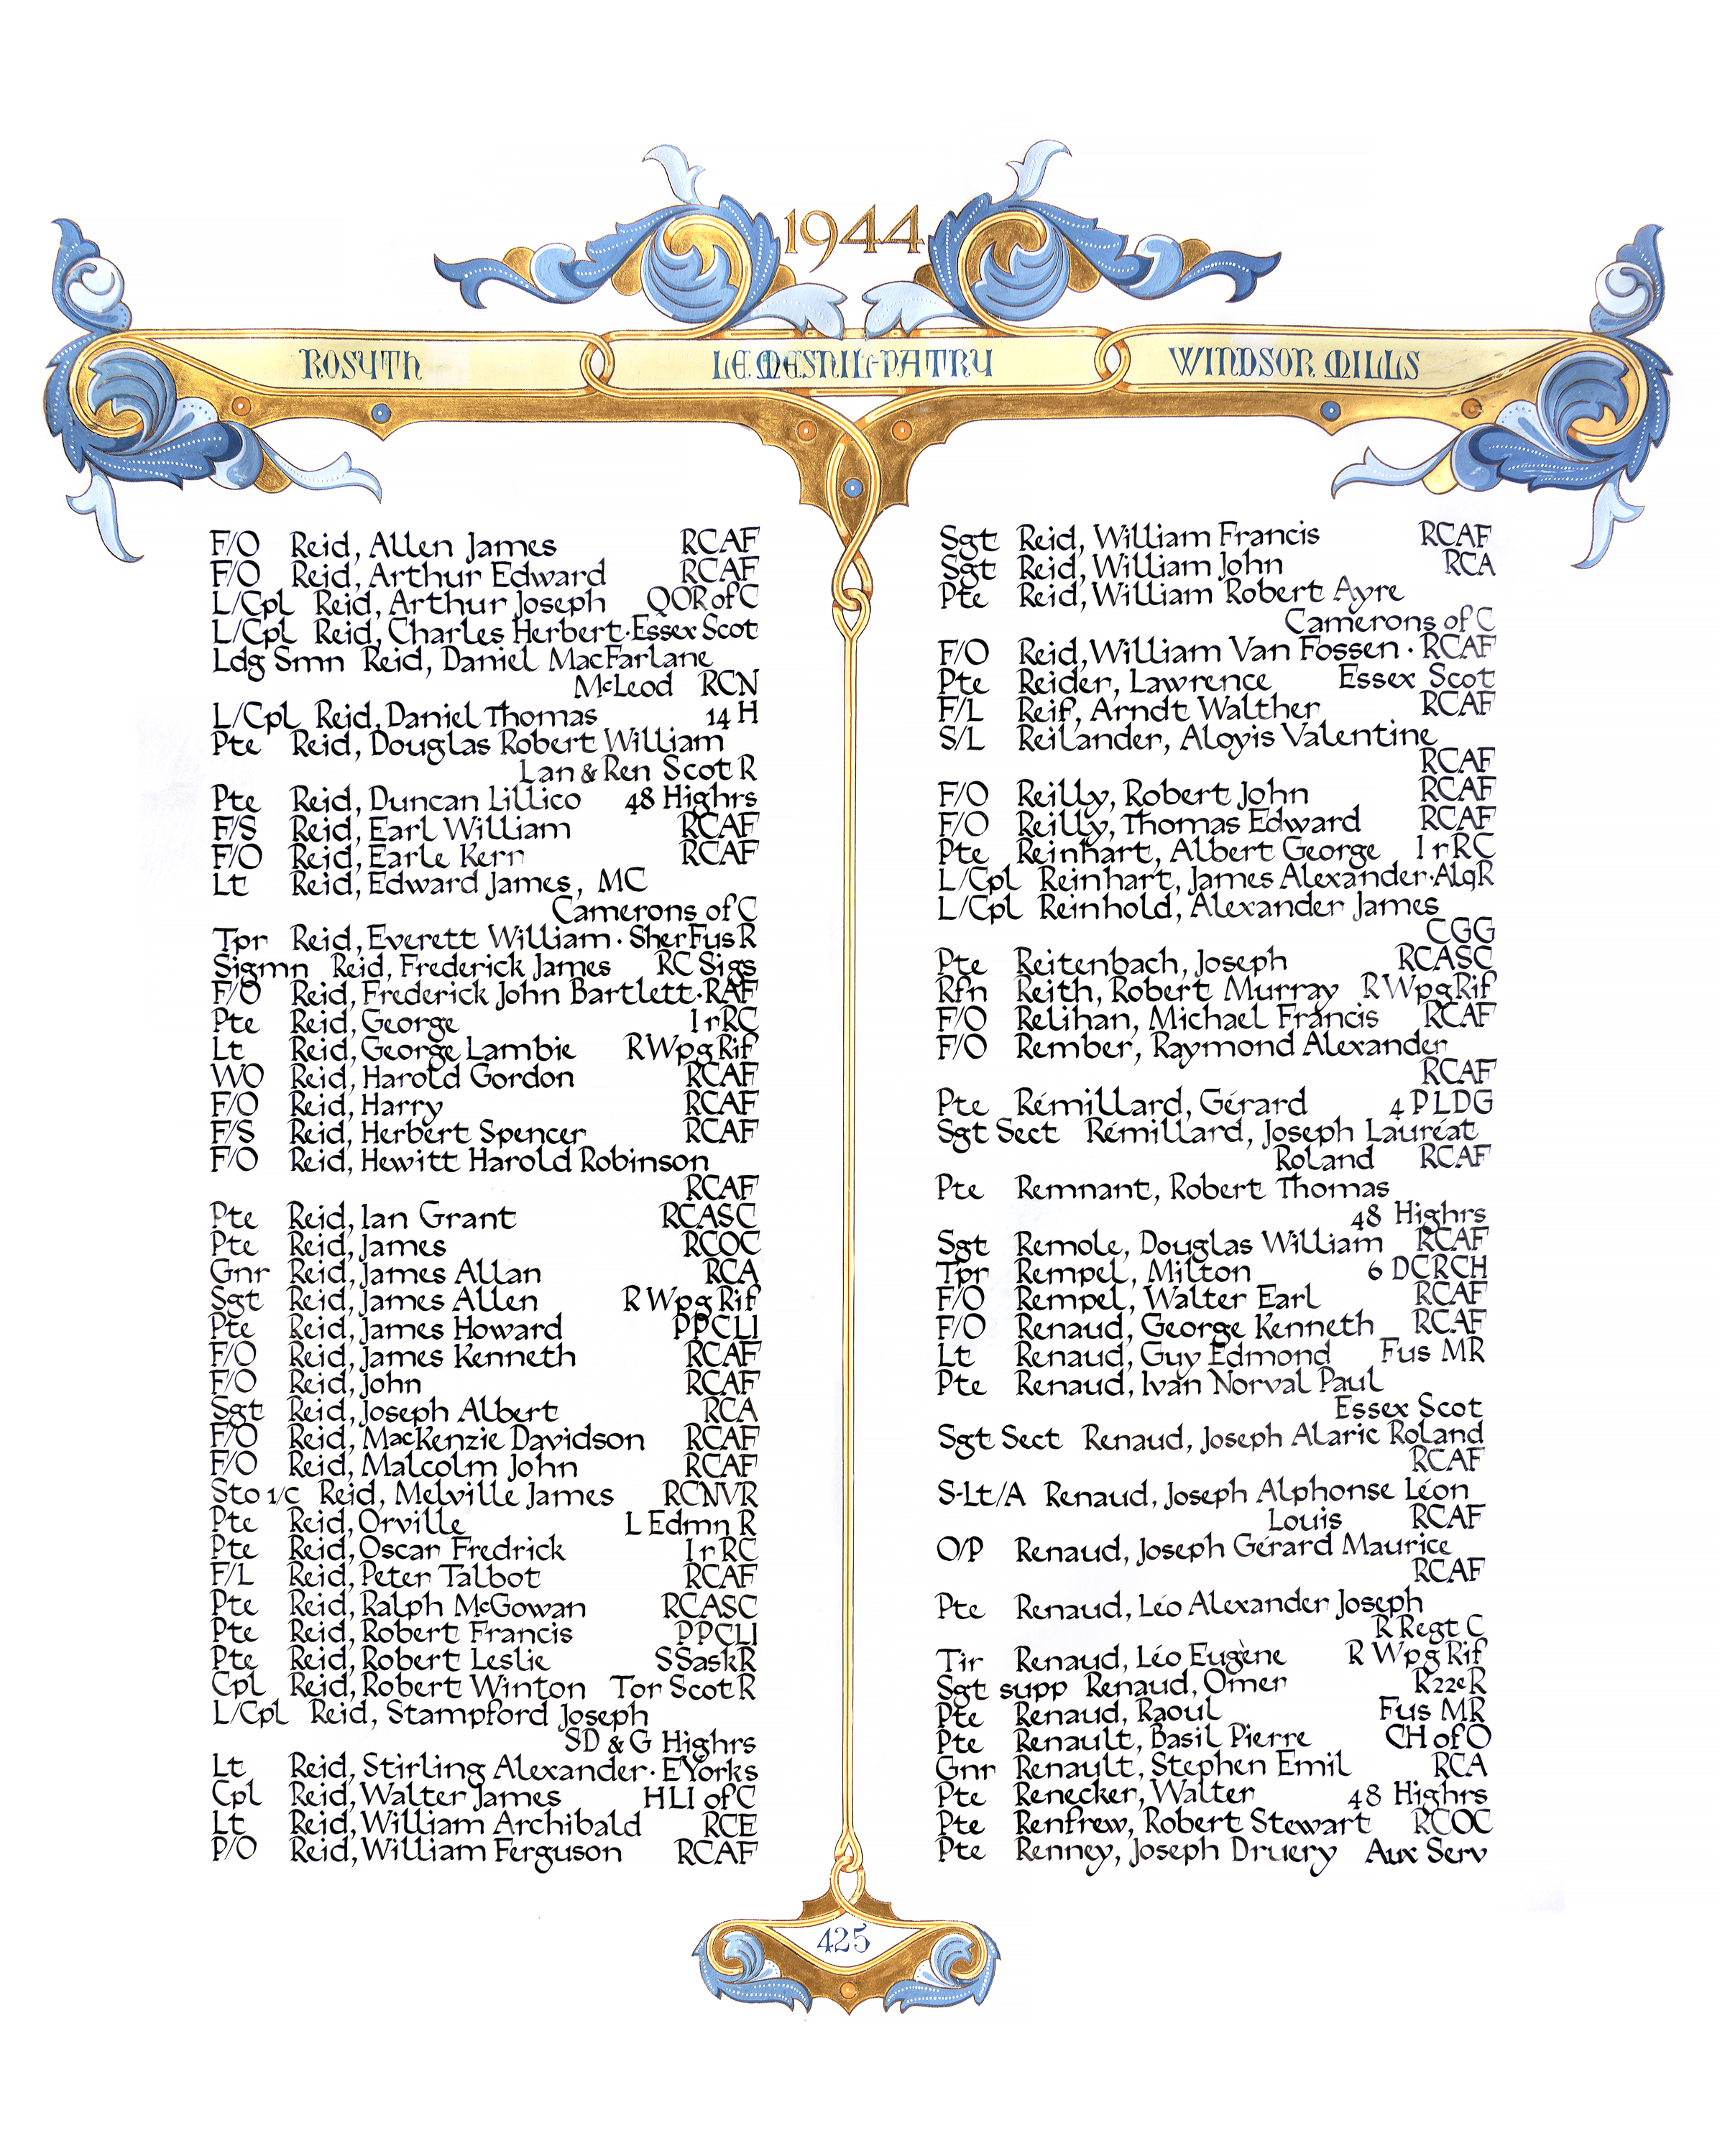 1944
ROSYTH
LE MESNIL-PATRY
WINDSOR MILLS
F/O Reid, Allen James RCAF
F/O Reid, Arthur Edward RCAF
L/Cpl Reid, Arthur Joseph QOR of C
L/Cpl Reid, Charles Herbert·Essex Scot
Ldg Smn Reid, Daniel MacFarlane
McLeod RCN
L/Cpl Reid, Daniel Thomas 14 H
Pte Reid, Douglas Robert William
Lan & Ren Scot R
Pte Reid, Duncan Lillico 48 Highrs
F/S Reid, Earl William RCAF
F/O Reid, Earle Kerr RCAF
Lt Reid, Edward James, MC
Camerons of C
Tpr Reid, Everett William · SherFusR
Sigmn Reid, Frederick James RC Sigs
F/O Reid, Frederick John Bartlett·RAF
Pte Reid, George IrRC
Lt Reid, George Lambie R Wpg Rif
WO Reid, Harold Gordon RCAF
F/O Reid, Harry RCAF
F/S Reid, Herbert Spencer RCAF
F/O Reid, Hewitt Harold Robinson
RCAF
Pte Reid, Ian Grant RCASC
Pte Reid, James RCOC
Gnr Reid, James Allan RCA
Sgt Reid, James Allen R Wpg Rif
Pte Reid, James Howard PPCLI
F/O Reid, James Kenneth RCAF
F/O Reid, John RCAF
Sgt Reid, Joseph Albert RCA
F/O Reid, MacKenzie Davidson RCAF
F/O Reid, Malcolm John RCAF
Sto 1/c Reid, Melville James RCNVR
Pte Reid, Orville L Edmn R
Pte Reid, Oscar Fredrick IrRC
F/L Reid, Peter Talbot RCAF
Pte Reid, Ralph McGowan RCASC
Pte Reid, Robert Francis PPCLI
Pte Reid, Robert Leslie SSaskR
Cpl Reid, Robert Winton Tor Scot R
L/Cpl Reid, Stampford Joseph
SD & G Highrs
Lt Reid, Stirling Alexander · EYorks
Cpl Reid, Walter James HLI of C
Lt Reid, William Archibald RCE
P/O Reid, William Ferguson RCAF
Sgt Reid, William Francis RCAF
Sgt Reid, William John RCA
Pte Reid, William Robert Ayre
Camerons of C
F/O Reid, William Van Fossen · RCAF
Pte Reider, Lawrence Essex Scot
F/L Reif, Arndt Walther RCAF
S/L Reilander, Aloyis Valentine
RCAF
F/O Reilly, Robert John RCAF
F/O Reilly, Thomas Edward RCAF
Pte Reinhart, Albert George IrRC
L/Cpl Reinhart, James Alexander·AlqR
L/Cpl Reinhold, Alexander James
CGG
Pte Reitenbach, Joseph RCASC
Rfn Reith, Robert Murray R WpgRif
F/O Relihan, Michael Francis RCAF
F/O Rember, Raymond Alexander
RCAF
Pte Rémillard, Gérard 4 PLDG
Sgt Sect Rémillard, Joseph Lauréat
Roland RCAF
Pte Remnant, Robert Thomas
48 Highrs
Sgt Remole, Douglas William RCAF
Tpr Rempel, Milton 6 DCRCH
F/O Rempel, Walter Earl RCAF
F/O Renaud, George Kenneth RCAF
Lt Renaud, Guy Edmond Fus MR
Pte Renaud, Ivan Norval Paul
Essex Scot
Sgt Sect Renaud, Joseph Alaric Roland
RCAF
S-Lt/A Renaud, Joseph Alphonse Léon
Louis RCAF
O/P Renaud, Joseph Gérard Maurice
RCAF
Pte Renaud, Léo Alexander Joseph
R Regt C
Tir Renaud, Léo Eugène R Wpg Rif
Sgt supp Renaud, Omer R22eR
Pte Renaud, Raoul Fus MR
Pte Renault, Basil Pierre CH of O
Gnr Renault, Stephen Emil RCA
Pte Renecker, Walter 48 Highrs
Pte Renfrew, Robert Stewart RCOC
Pte Renney, Joseph Druery Aux Serv
425